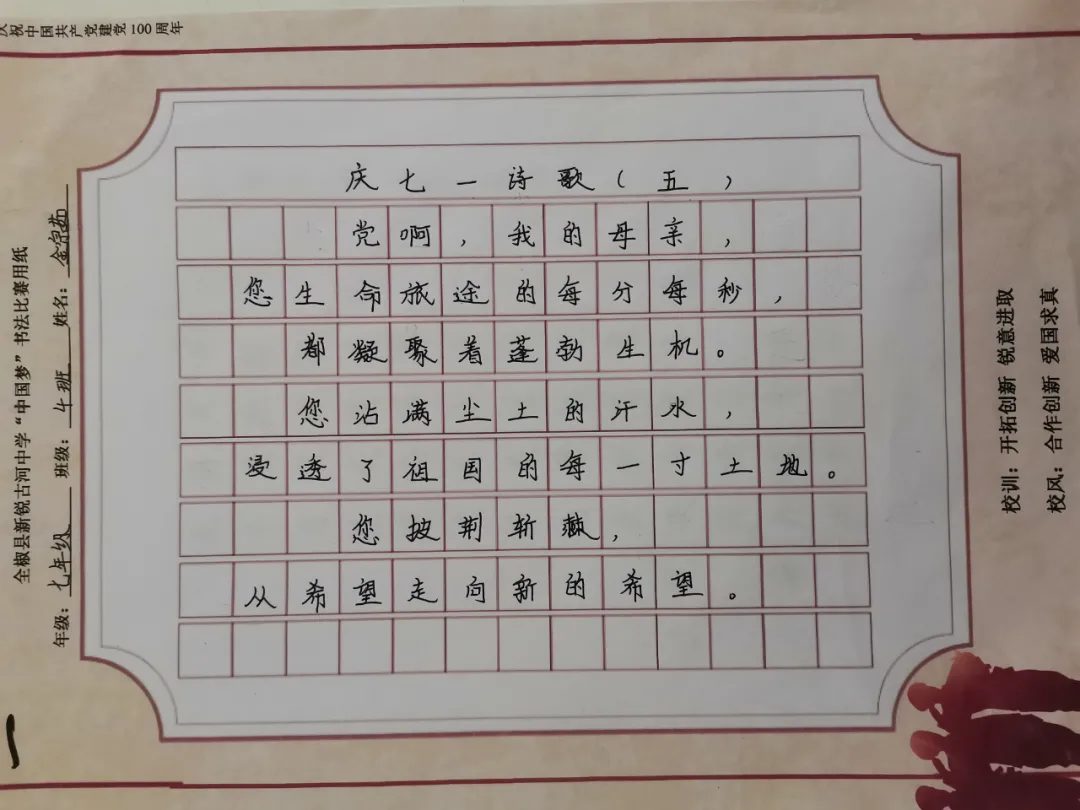 庆祝中国共产党建党100周年
全椒县新锐古河中学“中国梦”书法比赛用纸
年级：七年级 班级：4班 姓名：金宗茹
庆七一诗歌（五）
党啊，我的母亲，
您生命旅途的每分每秒，
都凝聚着蓬勃生机。
您沾满尘土的汗水，
浸透了祖国的每一寸土地。
您披荆斩棘，
从希望走向新的希望。
校训：开拓创新 锐意进取
校风：合作创新 爱国求真
一